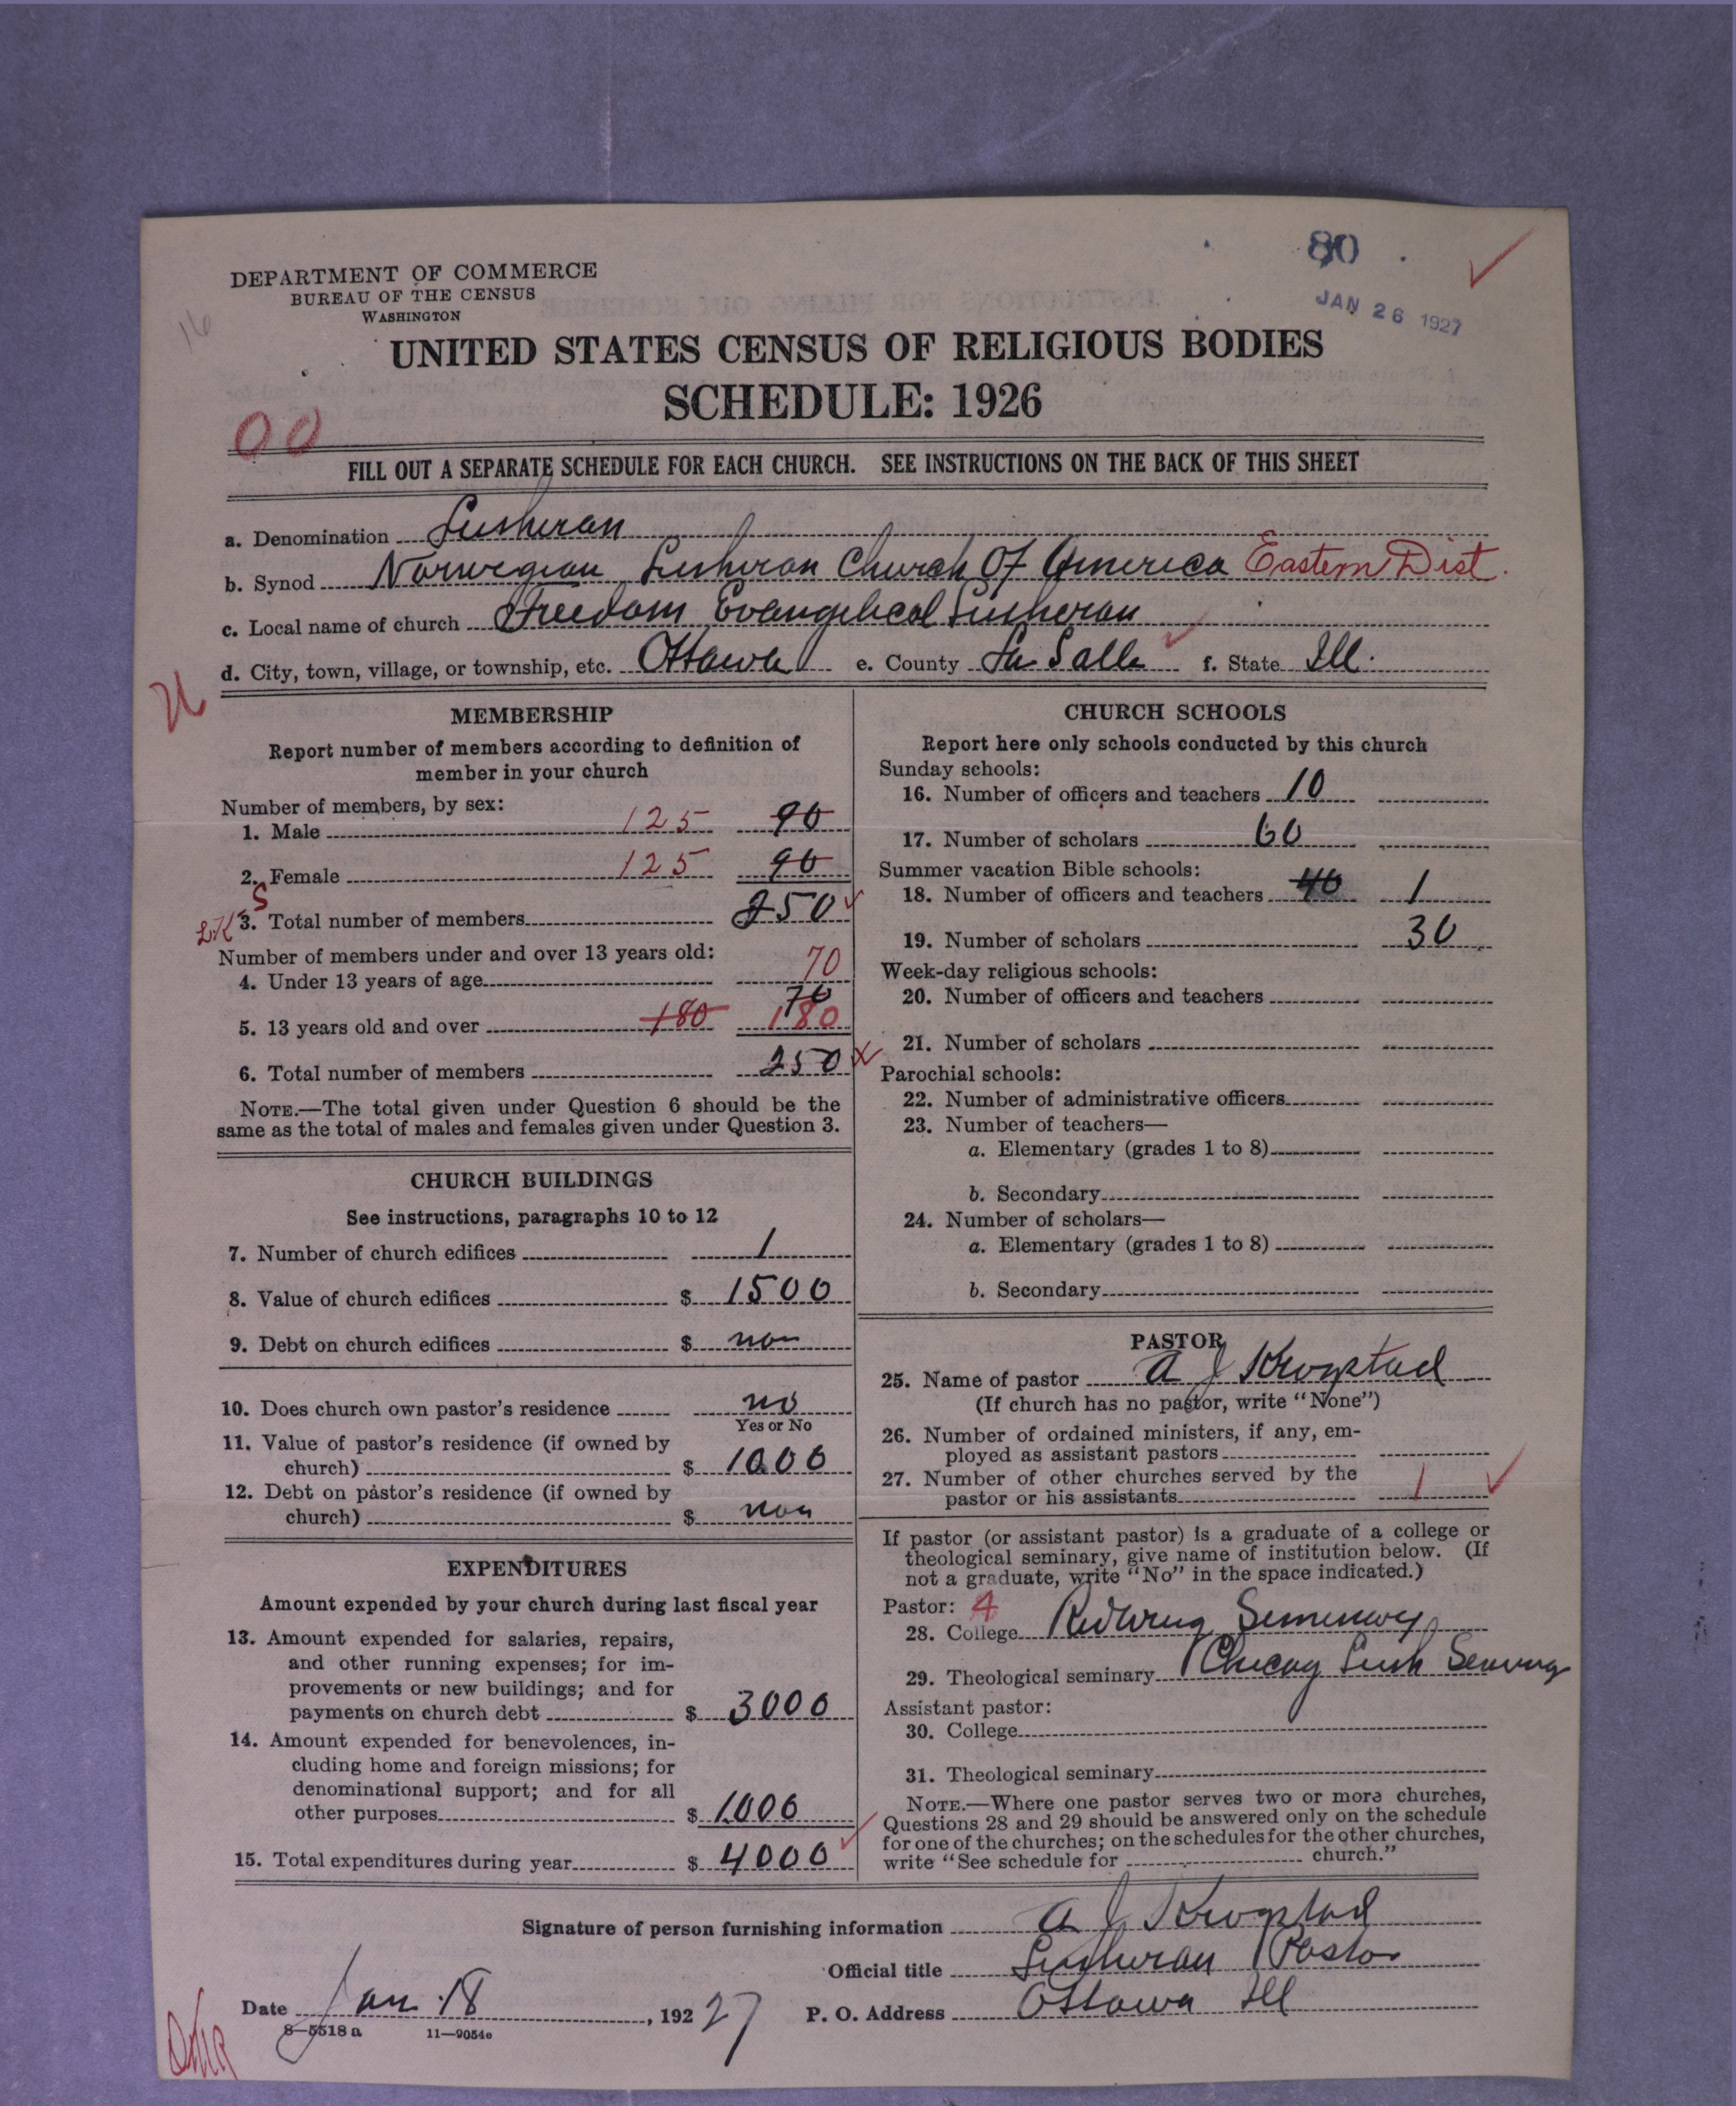 80
JAN 26 1927
16
DEPARTMENT OF COMMERCE
BUREAU OF THE CENSUS
WASHINGTON
UNITED STATES CENSUS OF RELIGIOUS BODIES
SCHEDULE: 1926
00
FILL OUT A SEPARATE SCHEDULE FOR EACH CHURCH. SEE INSTRUCTIONS ON THE BACK OF THIS SHEET
a. Denomination Lutheran
b. Synod Norwegian Lutheran Church Of America Eastern Dist.
c. Local name of church Freedom Evangelical Lutheran
d. City, town, village, or township, etc. Ottawa e. County La Salle f. State Ill.
MEMBERSHIP
Report number of members according to definition of
member in your church
Number of members, by sex:
1. Male 125 90
2. Female 125 90
3. Total number of members 250
Number of members under and over 13 years old:
4. Under 13 years of age 70
5. 13 years old and over 180 70 180
6. Total number of members 250
NOTE.—The total given under Question 6 should be the
same as the total of males and females given under Question 3.
CHURCH BUILDINGS
See instructions, paragraphs 10 to 12
7. Number of church edifices 1
8. Value of church edifices $ 1500
9. Debt on church edifices $ non
10. Does church own pastor's residence no
Yes or No
11. Value of pastor's residence (if owned by
church) $ 1000
12. Debt on pastor's residence (if owned by
church) $ non
EXPENDITURES
Amount expended by your church during last fiscal year
13. Amount expended for salaries, repairs,
and other running expenses; for im-
provements or new buildings; and for
payments on church debt $ 3000
14. Amount expended for benevolences, in-
cluding home and foreign missions; for
denominational support; and for all
other purposes $ 1000
15. Total expenditures during year $ 4000
CHURCH SCHOOLS
Report here only schools conducted by this church
Sunday schools:
16. Number of officers and teachers 10
17. Number of scholars 60
Summer vacation Bible schools:
18. Number of officers and teachers 40 1
19. Number of scholars 30
Week-day religious schools:
20. Number of officers and teachers
21. Number of scholars
Parochial schools:
22. Number of administrative officers
23. Number of teachers—
a. Elementary (grades 1 to 8)
b. Secondary
24. Number of scholars—
a. Elementary (grades 1 to 8)
b. Secondary
PASTOR
25. Name of pastor A J Krogstad
(If church has no pastor, write "None")
26. Number of ordained ministers, if any, em-
ployed as assistant pastors
27. Number of other churches served by the
pastor or his assistants 1
If pastor (or assistant pastor) is a graduate of a college or
theological seminary, give name of institution below. (If
not a graduate, write "No" in the space indicated.)
Pastor: 4
28. College Redwing Seminary
29. Theological seminary Chicag Luth Seminary
Assistant pastor:
30. College
31. Theological seminary
NOTE.—Where one pastor serves two or more churches,
Questions 28 and 29 should be answered only on the schedule
for one of the churches; on the schedules for the other churches,
write "See schedule for church."
Signature of person furnishing information A J Krogstad
Official title Lutheran Pastor
Date Jan. 18, 1927 P. O. Address Ottawa Ill
8—5518 a 11—9054c